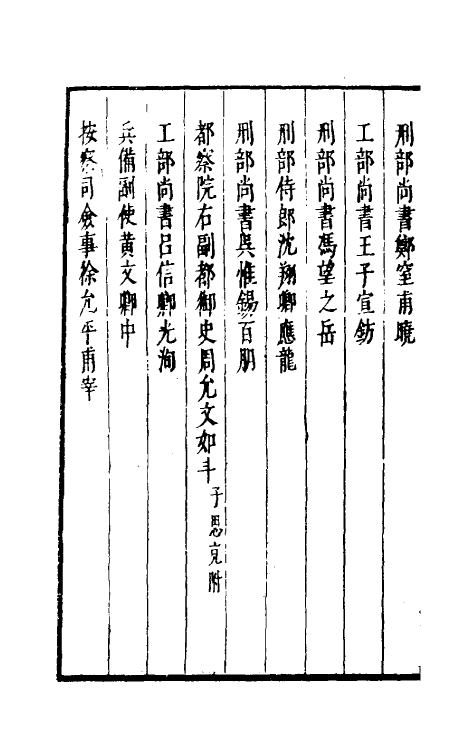 刑部尚書鄭窒甫曉
工部尚書王子宣鈁
刑部尚書馮望之岳
刑部侍郎沈翔卿應龍
刑部尚書吳惟錫百朋
都察院右副都御史周允文如斗子思充附
工部尚書呂信卿光洵
兵備副使黃文卿中
按察司僉事徐允平甫宰